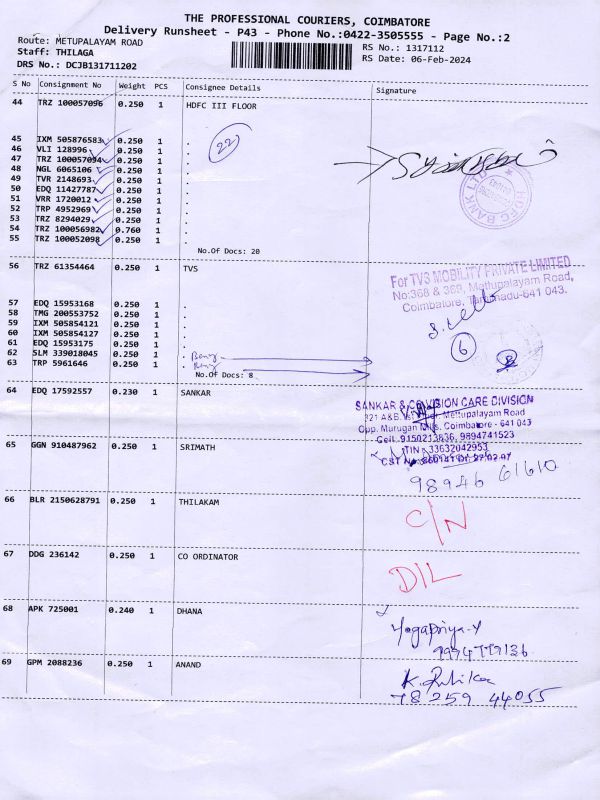 THE PROFESSIONAL COURIERS, COIMBATORE
Delivery Runsheet - P43 - Phone No.:0422-3505555 - Page No.:2
Route: METUPALAYAM ROAD
RS No.: 1317112
Staff: THILAGA
RS Date: 06-Feb-2024
DRS No.: DCJB131711202
S No Consignment No Weight PCS Consignee Details Signature
44 TRZ 100057096 0.250 1 HDFC III FLOOR
22
45 IXM 505876583 0.250 1 .
46 VLI 128996 0.250 1 .
47 TRZ 100057094 0.250 1 .
48 NGL 6065106 0.250 1 .
49 TVR 2148693 0.250 1 .
50 EDQ 11427787 0.250 1 .
51 VRR 1720012 0.250 1 .
52 TRP 4952969 0.250 1 .
53 TRZ 8294029 0.250 1 .
54 TRZ 100056982 0.760 1 .
55 TRZ 100052098 0.250 1 .
HDFC BANK LTD
No.Of Docs: 20
56 TRZ 61354464 0.250 1 TVS
For TVS MOBILITY PRIVATE LIMITED
No:368 & 369, Mettupalayam Road,
Coimbatore, Tamilnadu-641 043.
57 EDQ 15953168 0.250 1 .
58 TMG 200553752 0.250 1 .
59 IXM 505854121 0.250 1 .
60 IXM 505854127 0.250 1 .
61 EDQ 15953175 0.250 1 .
62 SLM 339018045 0.250 1 .
63 TRP 5961646 0.250 1 .
6
8
No.Of Docs: 8
64 EDQ 17592557 0.230 1 SANKAR
SANKAR & CO VISION CARE DIVISION
321 A&B, Mettupalayam Road
Opp. Murugan Mills, Coimbatore - 641 043
Cell: 9150213636, 9894741523
TIN : 33632042953
65 GGN 910487962 0.250 1 SRIMATH
98946 61610
66 BLR 2150628791 0.250 1 THILAKAM
C/N
67 DDG 236142 0.250 1 CO ORDINATOR
D/L
68 APK 725001 0.240 1 DHANA
Yogapriya-Y
69 GPM 2088236 0.250 1 ANAND
78259 44055